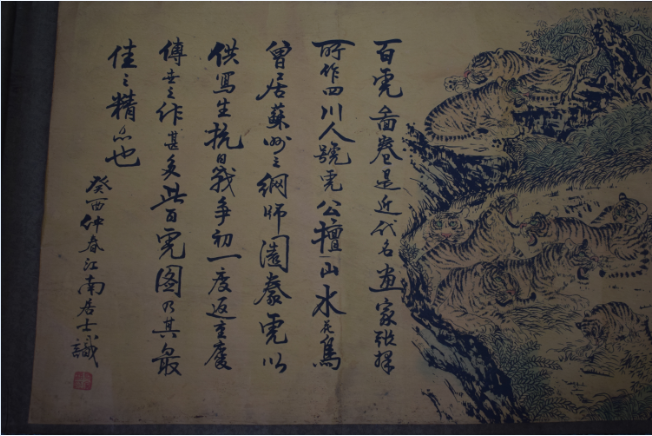 百虎图卷是近代名画家张择
所作四川人號虎公擅山水花鳥
曾居蘇州之網師園豢虎以
供寫生抗日战争初一度返重慶
傳世之作甚多此百虎图乃其最
佳之精品也
癸酉仲春江南居士識